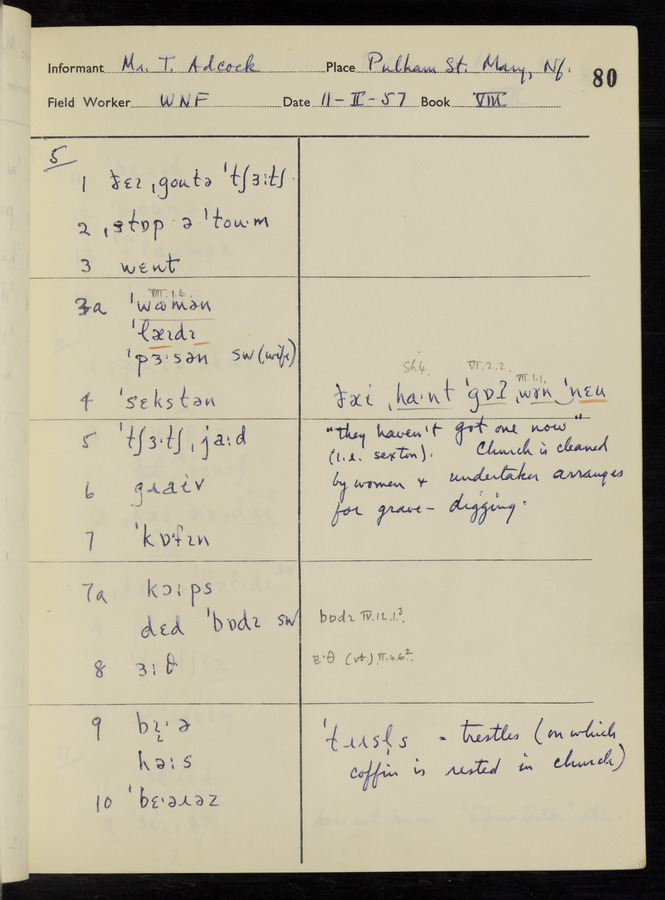 Informant Mr. T. Adcock Place Pulham St. Mary, Nf. 80
Field Worker WNF Date 11-II-57 Book VIII
5
1 ðɛɪ ˌgoutə ˈtʃɜːtʃ
2 ˌstɒp ə ˈtouˑm
3 wɛnt
3a VIII.1.6. ˈwʊmən
ˈlæɪdɪ
ˈpɜˑsən sw (wife)
4 ˈsɛkstən
Sh4. VI.2.2. VII.1.1.
ðæi ˌhaˑnt ˈgɒʔ ˌwən ˈnɛu
"they haven't got one now"
(i.e. sexton). Church is cleaned
by women + undertaker arranges
for grave-digging.
5 ˈtʃɜˑtʃ ˌjaːd
6 gɹaɪv
7 ˈkɒfɪn
7a kɔːps
dɛd ˈbɒdɪ sw
bɒdɪ IV.12.1.³
8 ɜːθ
ɐˑθ (vt.) II.4.6².
9 bɪˑə
həːs
ˈtɹɛsl̩s - trestles (on which
coffin is rested in church)
10 ˈbɛˑəɹəz